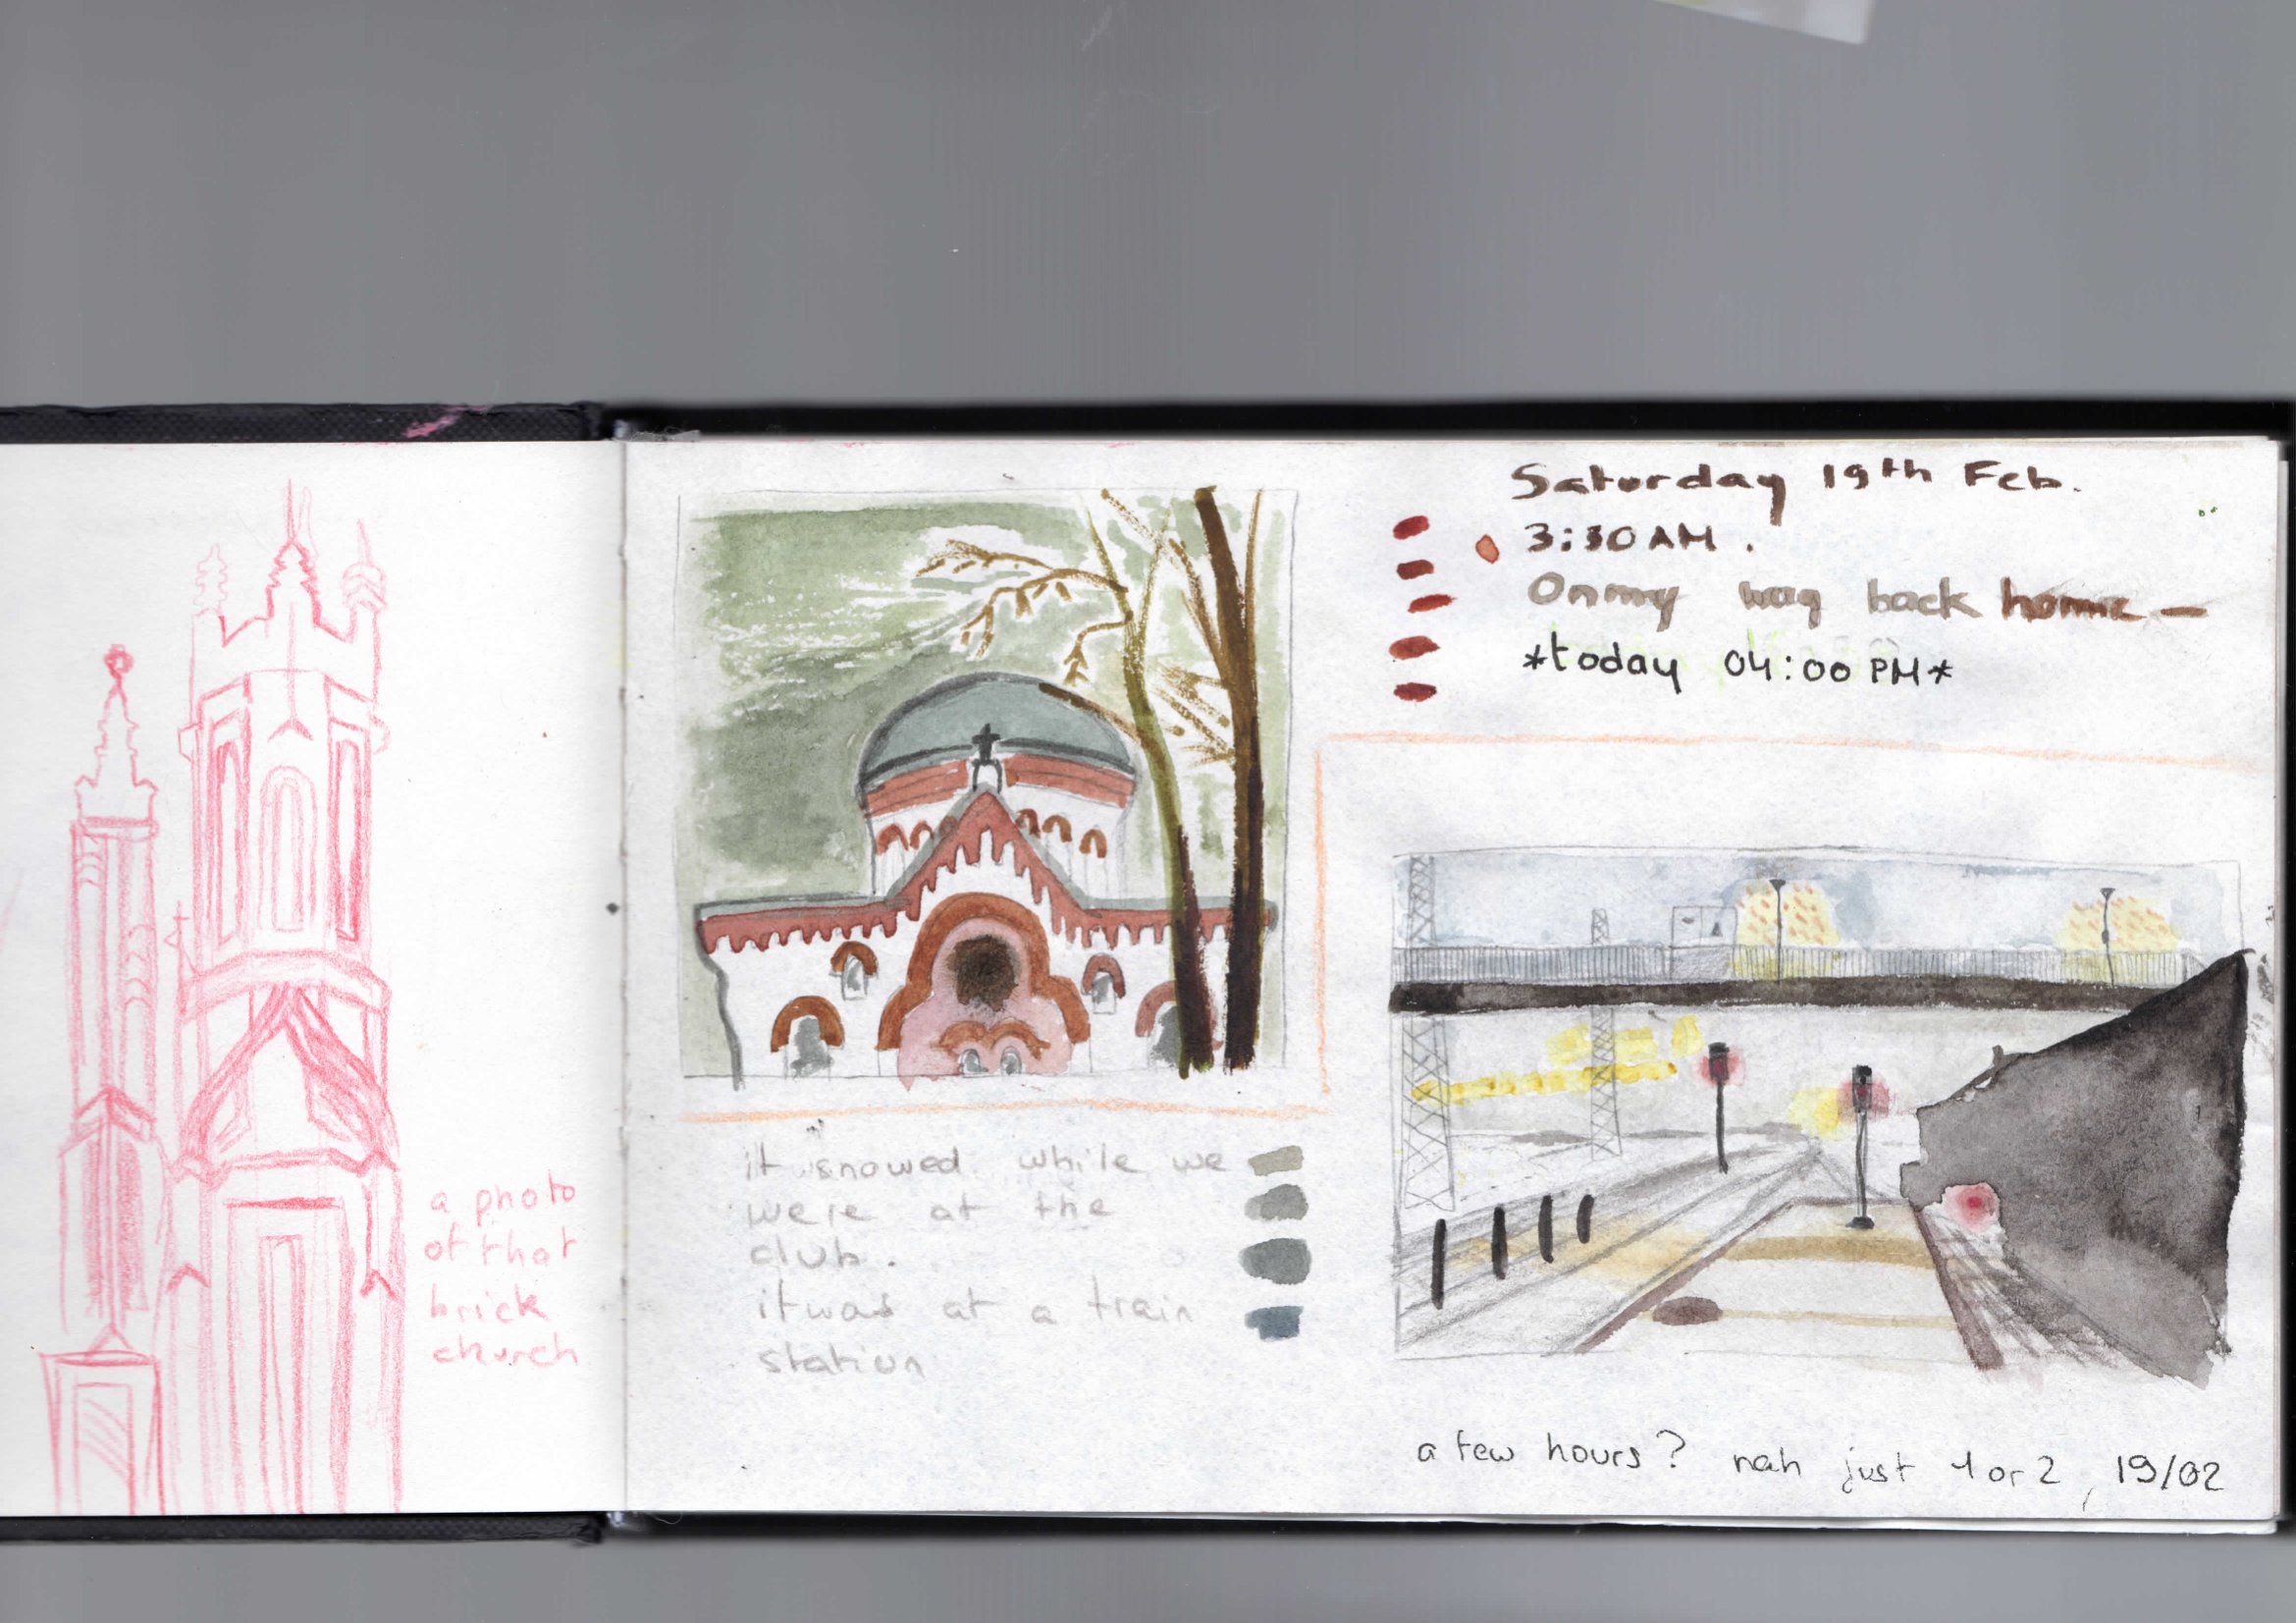 a photo
of that
brick
church
it snowed while we
were at the
club.
it was at a train
station
Saturday 19th Feb.
3:30 AM.
On my way back home —
*today 04:00 PM*
a few hours? nah just 1 or 2, 19/02